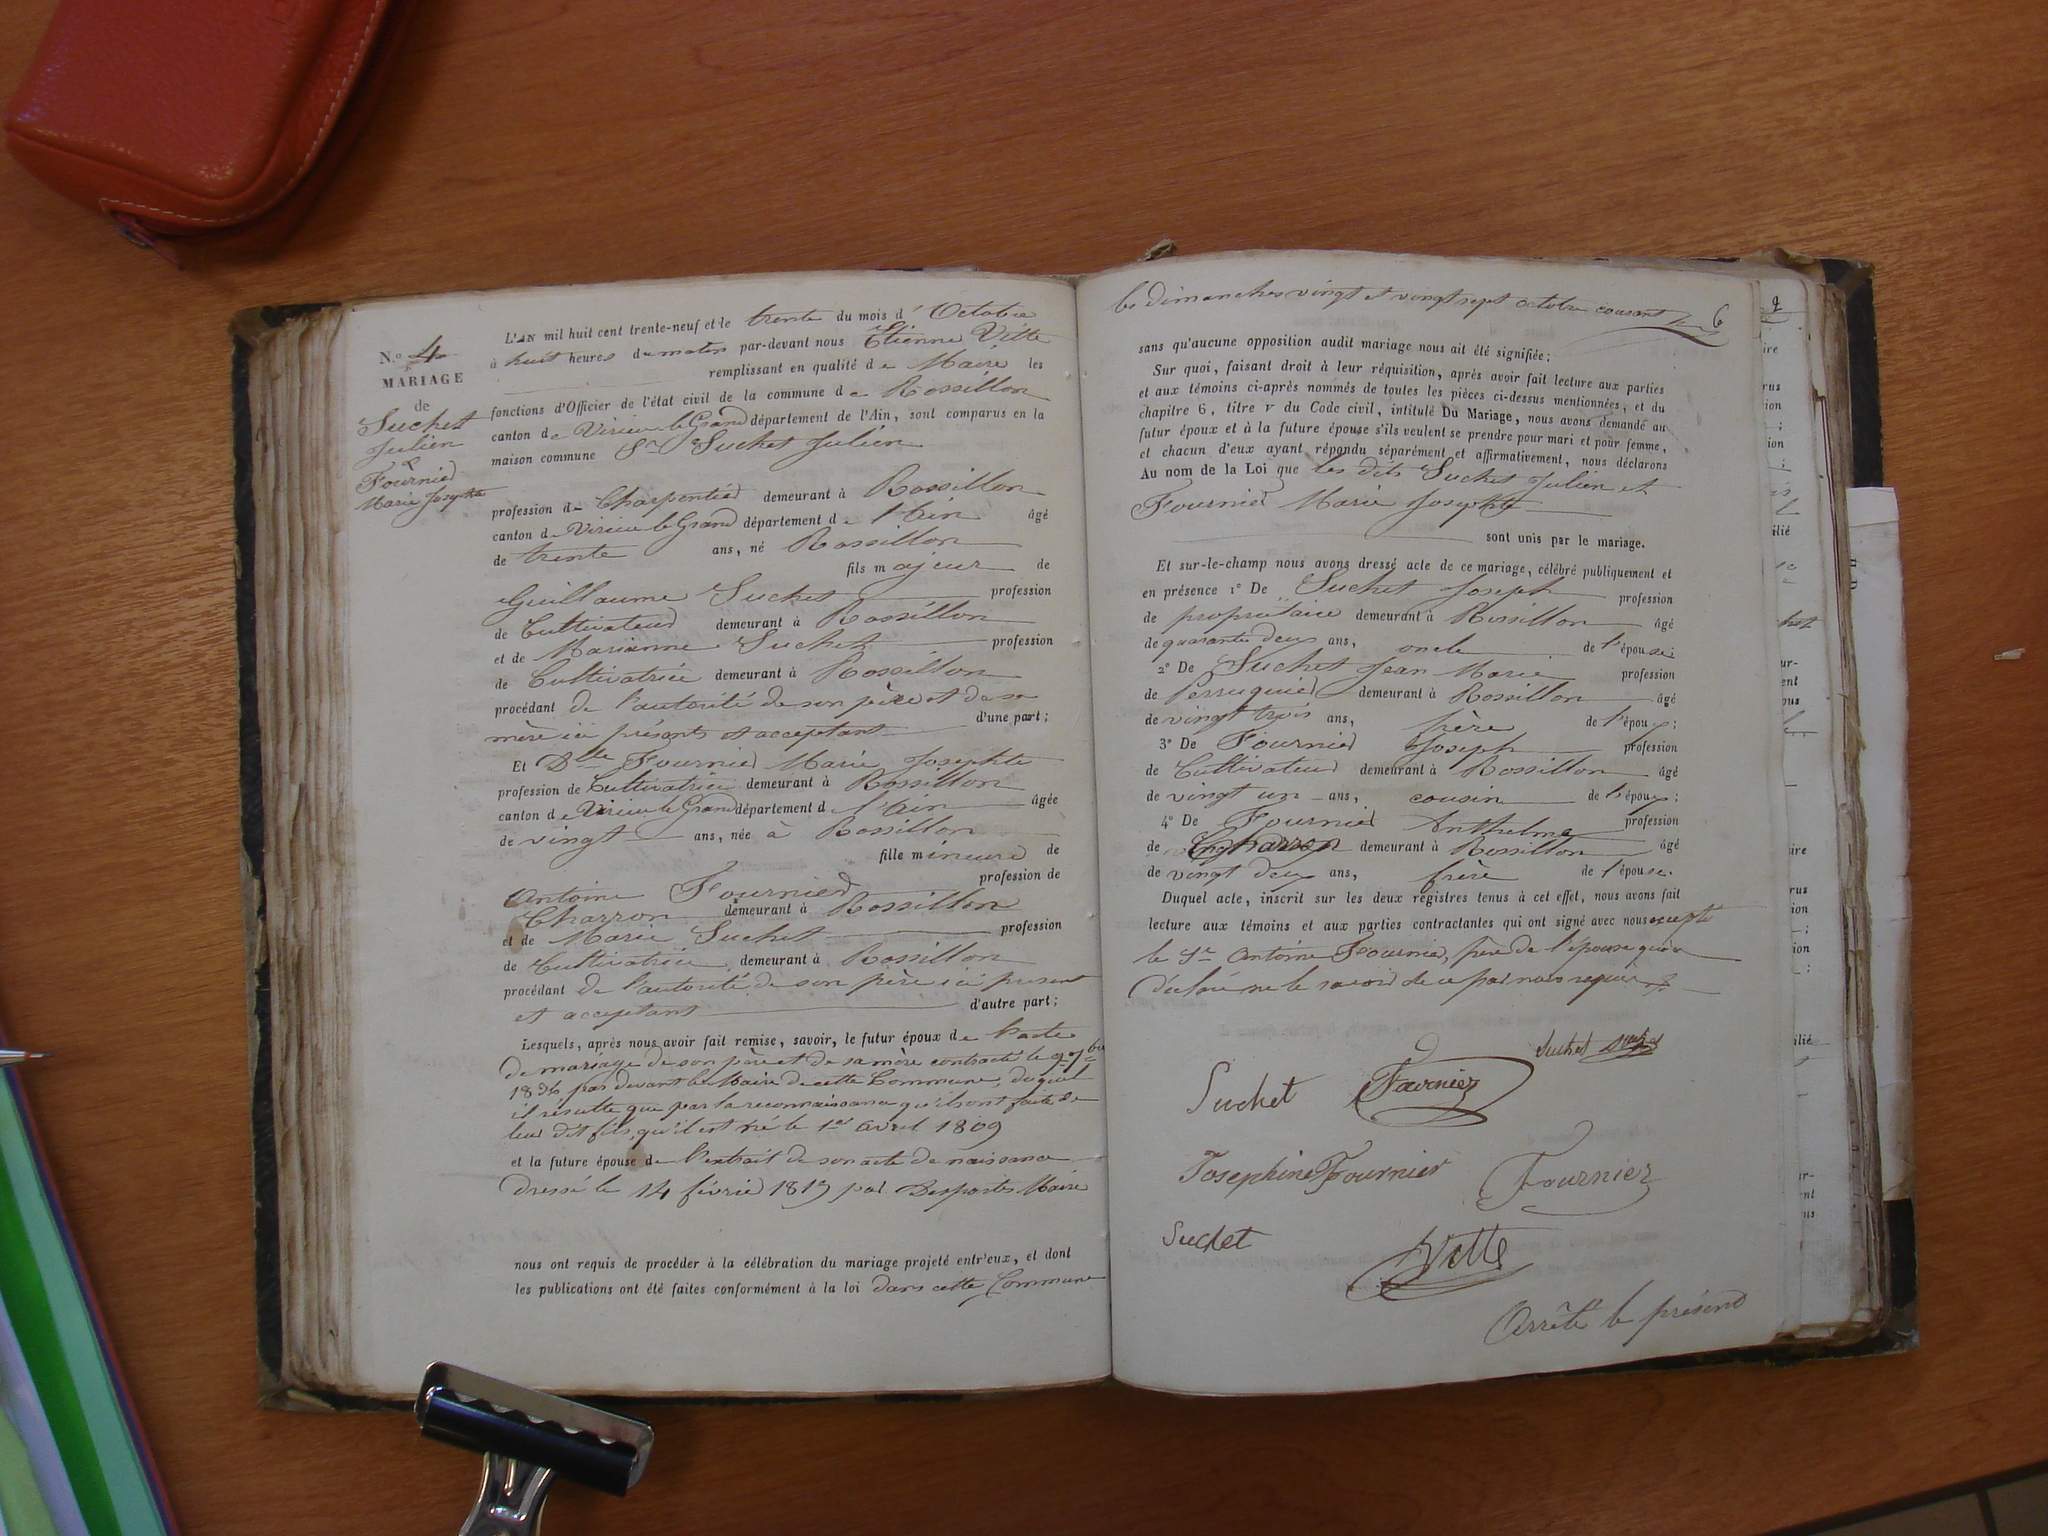 N.o 4
MARIAGE
de
Suchet
Julien
&
Fournier
Marie Josephte
L'AN mil huit cent trente-neuf et le trente du mois d'Octobre
à huit heures du matin par-devant nous Etienne Vitte
remplissant en qualité de Maire les
fonctions d'Officier de l'état civil de la commune de Rossillon
canton de Virieu le Grand département de l'Ain, sont comparus en la
maison commune Sr Suchet Julien
profession de Charpentier demeurant à Rossillon
canton de Virieu le Grand département de l'Ain âgé
de trente ans, né Rossillon
fils majeur de
Guillaume Suchet profession
de Cultivateur demeurant à Rossillon
et de Marianne Suchet profession
de Cultivatrice demeurant à Rossillon
procédant de l'autorité de son père et de sa
mère ici présents et acceptant d'une part;
Et Dlle Fournier Marie Josephte
profession de Cultivatrice demeurant à Rossillon
canton de Virieu le Grand département de l'Ain âgée
de vingt ans, née à Rossillon
fille mineure de
profession de
Antoine Fournier
Charron demeurant à Rossillon
et de Marie Suchet profession
de Cultivatrice demeurant à Rossillon
procédant de l'autorité de son père ici present
et acceptant d'autre part;
Lesquels, après nous avoir fait remise, savoir, le futur époux de l'acte
de mariage de son père et de sa mère contracté le 9 7bre
par devant le Maire de cette Commune, duquel
il résulte que par la reconnaissance qu'ils ont faite de
leur dit fils, qu'il est né le 1er avril 1809
et la future épouse de l'extrait de son acte de naissance
dressé le 14 février 1819 par Desportes Maire
nous ont requis de procéder à la célébration du mariage projeté entr'eux, et dont
les publications ont été faites conformément à la loi dans cette Commune
les dimanches vingt et vingt sept octobre courant
6
sans qu'aucune opposition audit mariage nous ait été signifiée;
Sur quoi, faisant droit à leur réquisition, après avoir fait lecture aux parties
et aux témoins ci-après nommés de toutes les pièces ci-dessus mentionnées, et du
chapitre 6, titre v du Code civil, intitulé Du Mariage, nous avons demandé au
futur époux et à la future épouse s'ils veulent se prendre pour mari et pour femme,
et chacun d'eux ayant répondu séparément et affirmativement, nous déclarons
Au nom de la Loi que les dits Suchet Julien et
Fournier Marie Josephte
sont unis par le mariage.
Et sur-le-champ nous avons dressé acte de ce mariage, célébré publiquement et
en présence 1º De Suchet Joseph profession
de propriétaire demeurant à Rossillon âgé
de quarante deux ans, oncle de l'épouse;
2º De Suchet Jean Marie profession
de Perruquier demeurant à Rossillon âgé
de vingt trois ans, frère de l'époux;
3º De Fournier Joseph profession
de Cultivateur demeurant à Rossillon âgé
de vingt un ans, cousin de l'époux;
4º De Fournier Anthelme profession
de Charron demeurant à Rossillon âgé
de vingt deux ans, frère de l'épouse.
Duquel acte, inscrit sur les deux registres tenus à cet effet, nous avons fait
lecture aux témoins et aux parties contractantes qui ont signé avec nous excepté
le Sr Antoine Fournier, père de l'épouse qui a
déclaré ne le savoir de ce par nous requis
Suchet
Suchet Fournier
Josephine Fournier Fournier
Suchet Vitte
Arrêté le présent